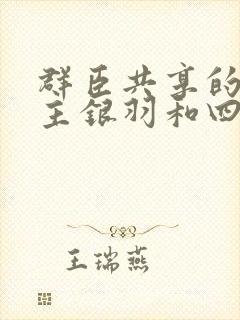 群臣共享的
主银羽和四
王瑞燕